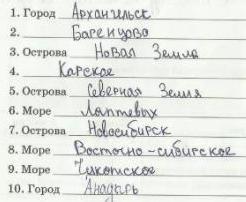 1. Город Архангельск
2. Баренцово
3. Острова Новая Земля
4. Карское
5. Острова Северная Земля
6. Море Лаптевых
7. Острова Новосибирск
8. Море Восточно-сибирское
9. Море Чукотское
10. Город Анадырь